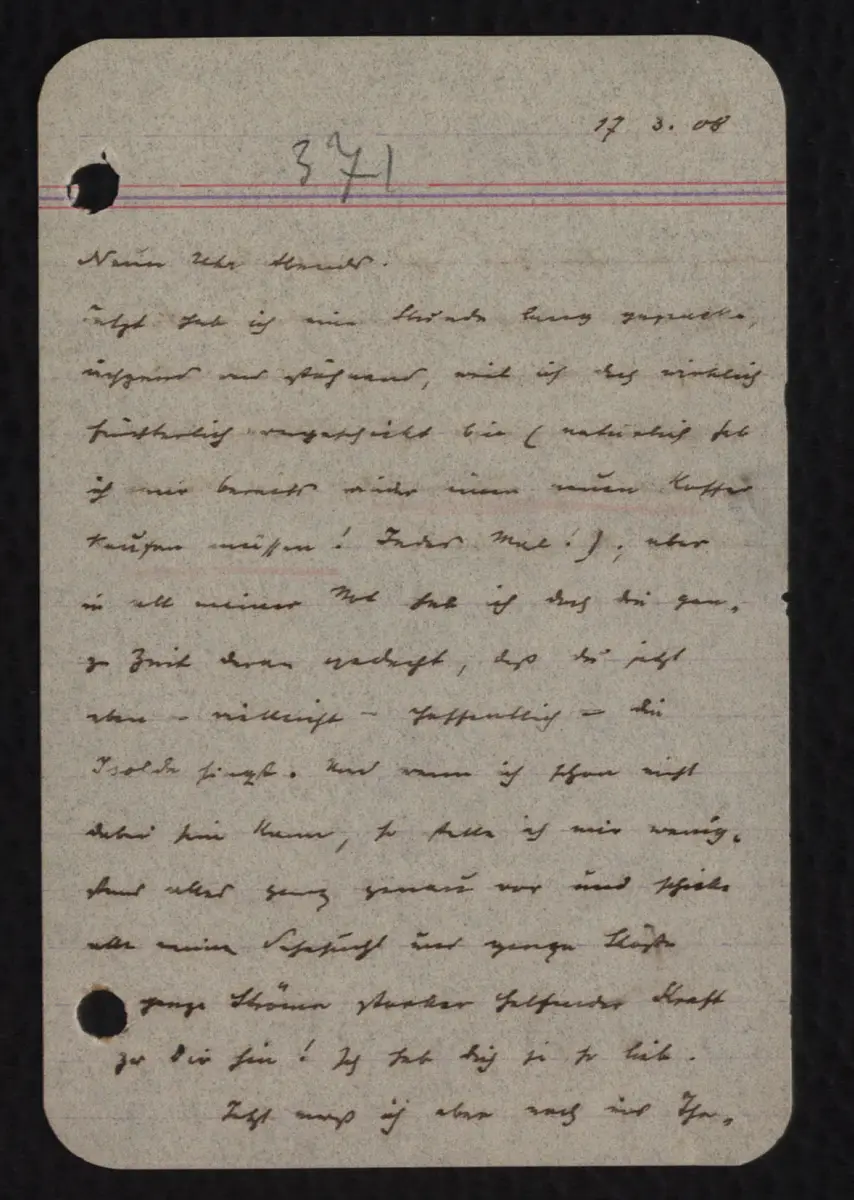 17 3. 08
371
Neun Uhr Abends.
Jetzt hab ich eine Stunde lang gepackt,
ächzend und stöhnend, weil ich doch wirklich
fürchterlich ungeschickt bin (natürlich hab
ich mir bereits wieder einen neuen Koffer
kaufen müssen! Jedes Mal!), aber
in all meiner Not hab ich doch die gan-
ze Zeit daran gedacht, daß du jetzt
eben – vielleicht – hoffentlich – die
Isolde singst. Und wenn ich schon nicht
dabei sein kann, so stelle ich mir wenig-
stens alles ganz genau vor und schicke
alle meine Sehnsucht und ganze Stöße
ganze Ströme starker helfender Kraft
zu Dir hin! Ich hab dich ja so lieb.
Jetzt muß ich aber noch ins Thea-